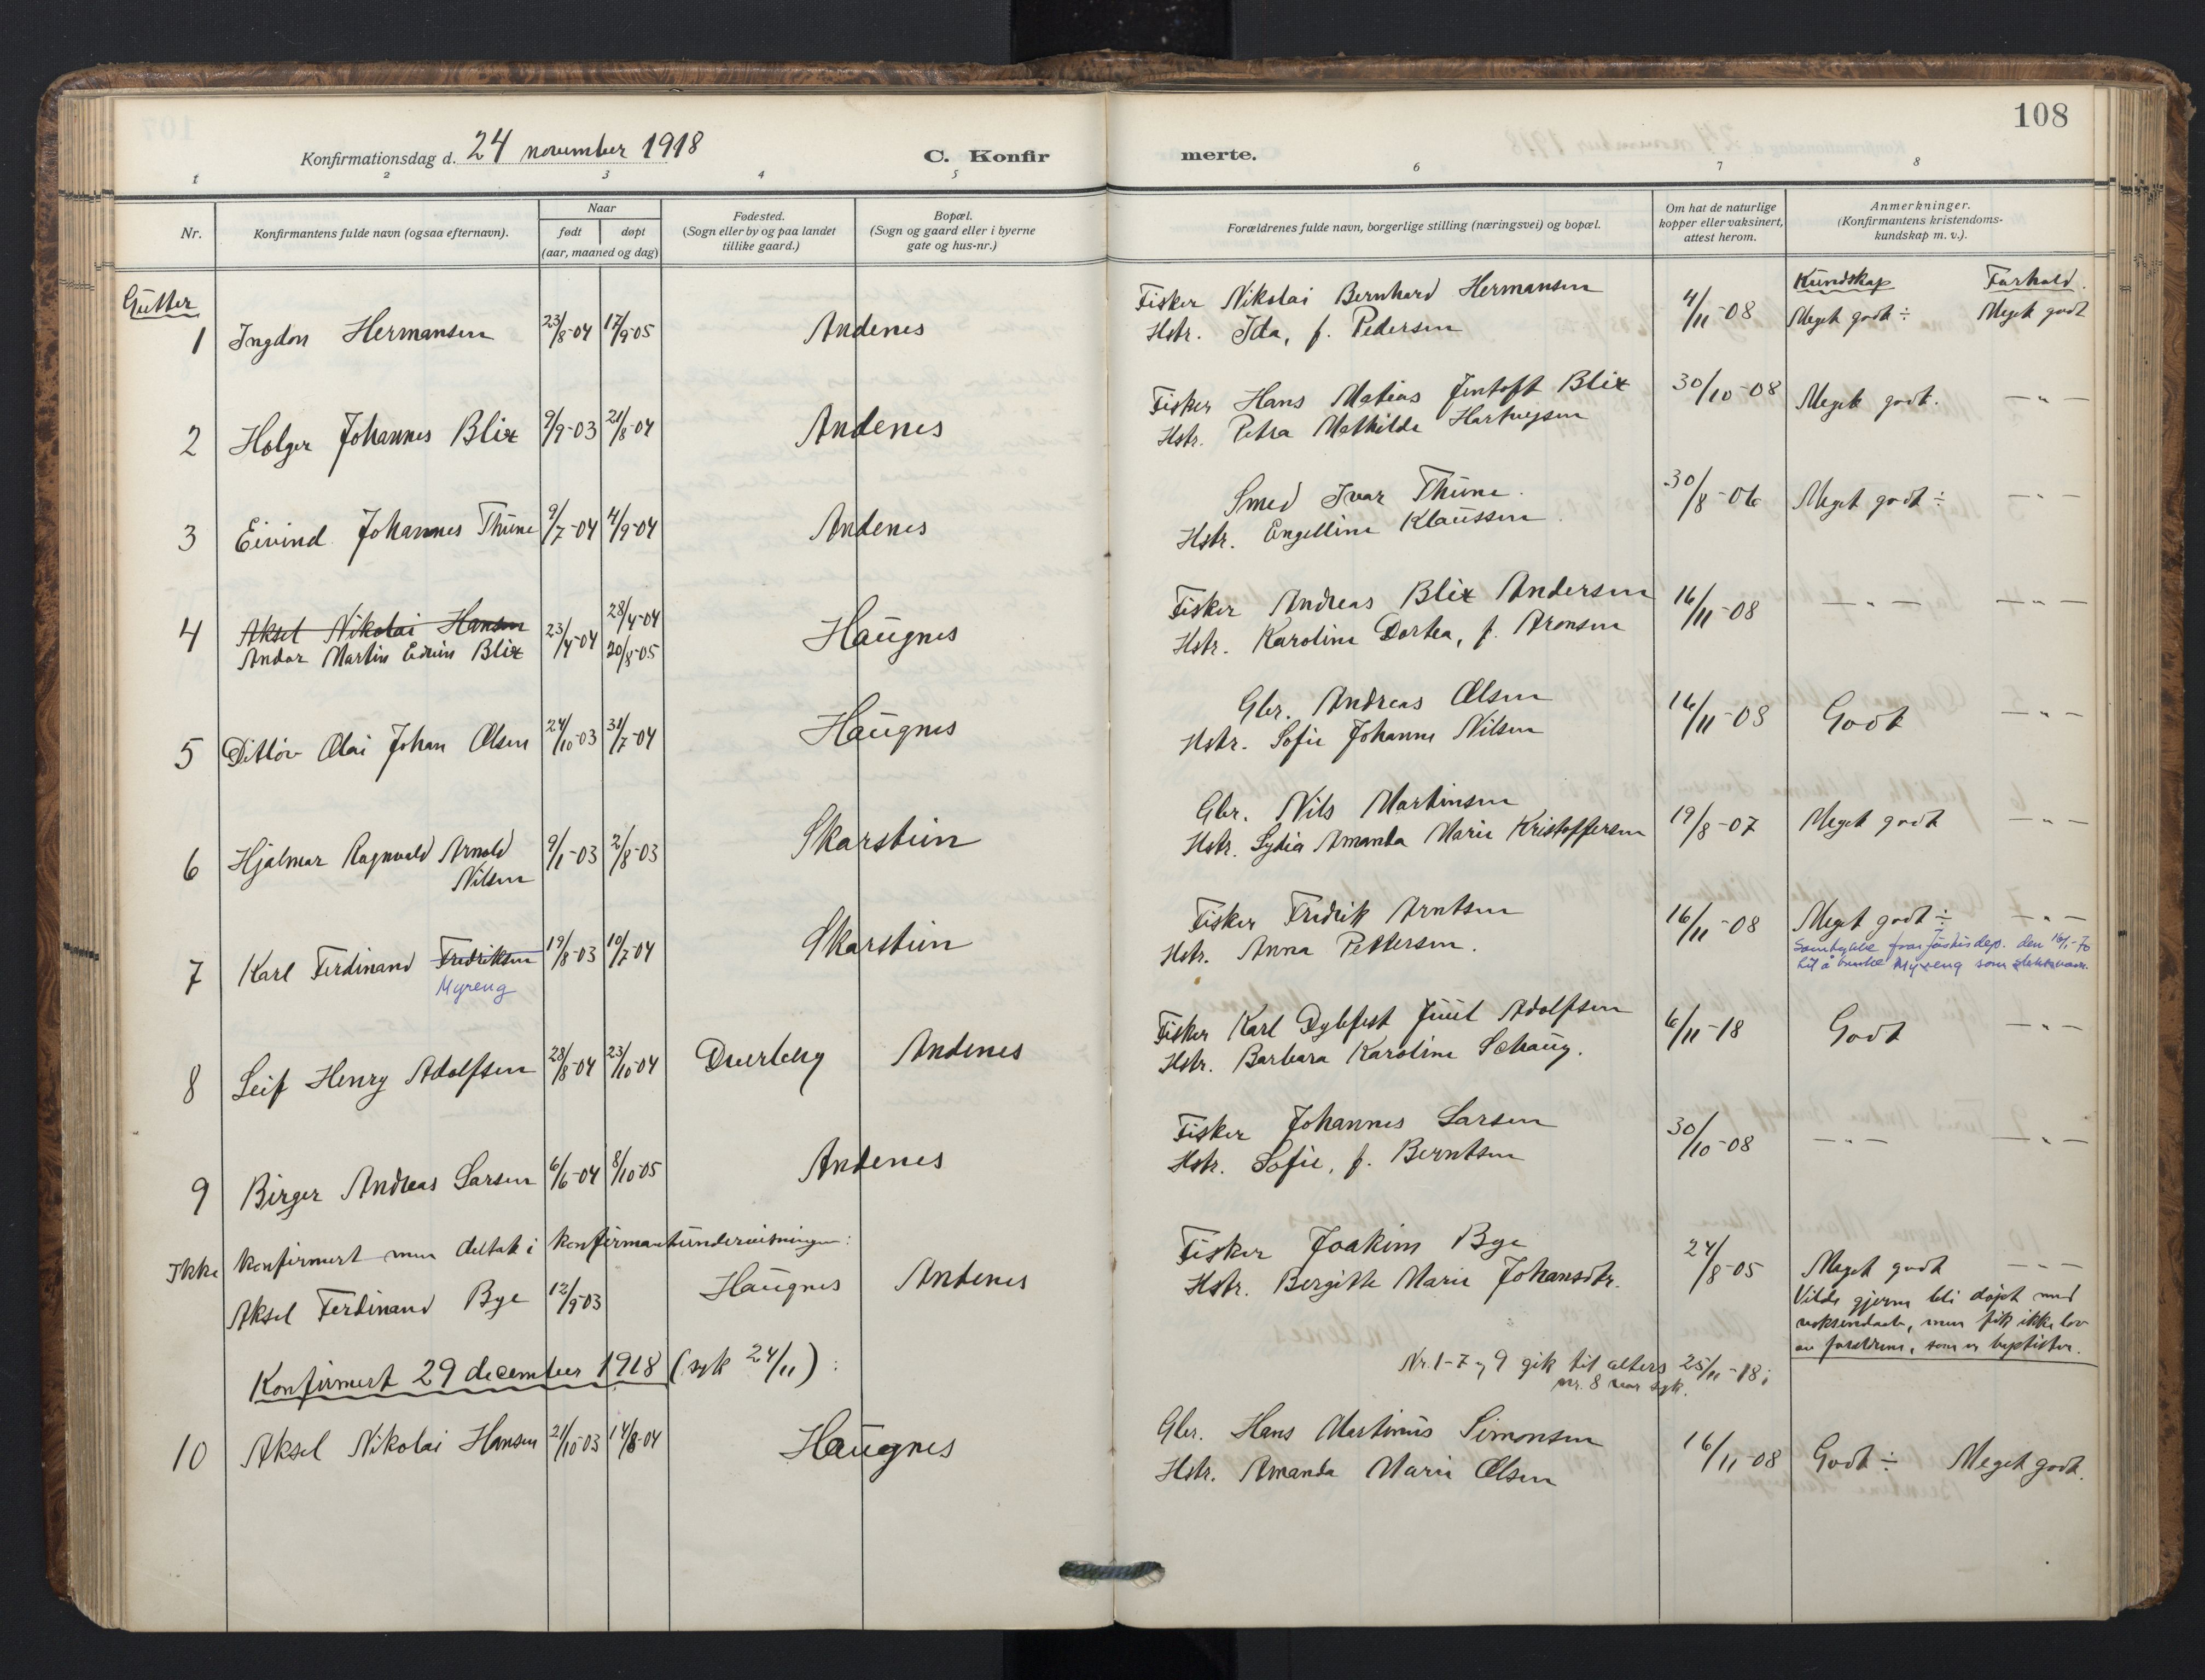 108
Konfirmationsdag d. 24 november 1918
C. Konfirmerte.
1 2 3 4 5 6 7 8
Nr.
Konfirmantens fulde navn (ogsaa efternavn).
Naar
født døpt
(aar, maaned og dag)
Fødested.
(Sogn eller by og paa landet
tillike gaard.)
Bopæl.
(Sogn og gaard eller i byerne
gate og hus-nr.)
Forældrenes fulde navn, borgerlige stilling (næringsvei) og bopæl.
Om hat de naturlige
kopper eller vaksinert,
attest herom.
Anmerkninger.
(Konfirmantens kristendoms-
kundskap m. v.).
Gutter
Kundskap Forhold.
1 Ingdon Hermansen 23/8-04 17/9-05 Andenes
Fisker Nikolai Bernhard Hermansen
Hstr. Ida, f. Pedersen
4/11-08 Meget godt ÷ Meget godt
2 Holger Johannes Blix 9/9-03 21/8-04 Andenes
Fisker Hans Matias Jentoft Blix
Hstr. Petra Mathilde Hartvigsen
30/10-08 Meget godt. — " —
3 Eivind Johannes Thune 9/7-04 4/9-04 Andenes
Smed Ivar Thune.
Hstr. Engelline Klaussen.
30/8-06 Meget godt ÷ — " —
4 Aksel Nikolai Hansen
Andor Martin Edvin Blix 23/4-04 28/4-04
20/8-05 Haugnes
Fisker Andreas Blix Andersen
Hstr. Karoline Dortea, f. Aronsen
16/11-08 — " — — " —
5 Ditløv Olai Johan Olsen 24/10-03 31/7-04 Haugnes
Gbr. Andreas Olsen
Hstr. Sofie Johanne Nilsen
16/11-08 Godt — " —
6 Hjalmar Ragnvald Arnold
Nilsen 9/1-03 2/8-03 Skarstein
Gbr. Nils Martinsen
Hstr. Lydia Amanda Marie Kristoffersen
19/8-07 Meget godt — " —
7 Karl Ferdinand Fredriksen
Myreng 19/8-03 10/7-04 Skarstein
Fisker Fredrik Arntsen
Hstr. Anna Pettersen.
16/11-08 Meget godt ÷ — " —
Samtykke fra Justisdep. den 16/1-70
til å bruke Myreng som slektsnavn.
8 Leif Henry Adolfsen 28/8-04 23/10-04 Dverberg Andenes
Fisker Karl Dylefest Juul Adolfsen
Hstr. Barbara Karoline Schaug.
6/11-18 Godt — " —
9 Birger Andreas Larsen 6/6-04 8/10-05 Andenes
Fisker Johannes Larsen
Hstr. Sofie, f. Berntsen
30/10-08 — " — — " —
Ikke konfirmert men deltat i konfirmantundervisningen:
Aksel Ferdinand Bye 12/9-03 Haugnes Andenes
Fisker Joakim Bye
Hstr. Bergitte Marie Johansdtr.
24/8-05 Meget godt — " —
Vilde gjerne bli døpt med
voksendaab, men fik ikke lov
av forældrene, som er baptister.
Nr. 1-7 og 9 gik til alters 25/11-18;
nr. 8 var syk.
Konfirmert 29 december 1918 (syk 24/11):
10 Aksel Nikolai Hansen 21/10-03 14/8-04 Haugnes
Gbr. Hans Martinus Simonsen
Hstr. Amanda Marie Olsen
16/11-08 Godt ÷ Meget godt.